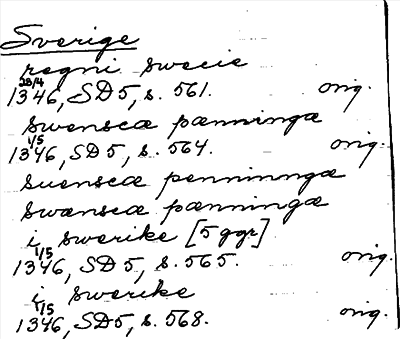 Sverige
regni swecie
28/4
1346, SD5, s. 561. orig.
swenscæ pænningæ
1/5
1346, SD5, s. 564. orig.
suenscæ penninngæ
swænscæ pænningæ
i swerike [5 ggr]
1/5
1346, SD5, s. 565. orig.
i swerike
1/5
1346, SD5, s. 568. orig.